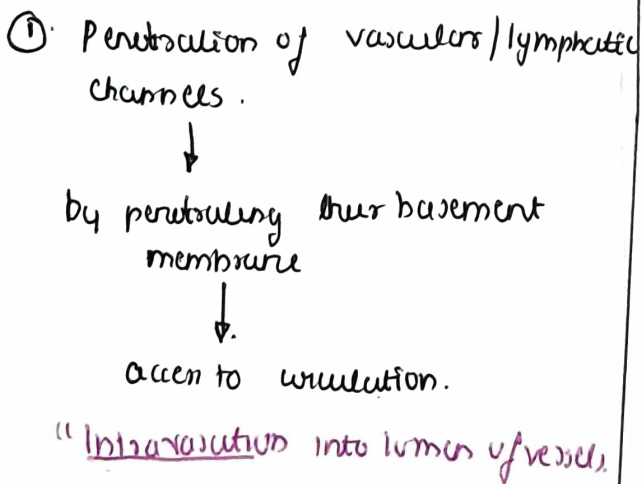 ① Penetration of vascular/lymphatic
channels.
↓
by penetrating their basement
membrane
↓
access to circulation.
"Intravasation into lumen of vessels.